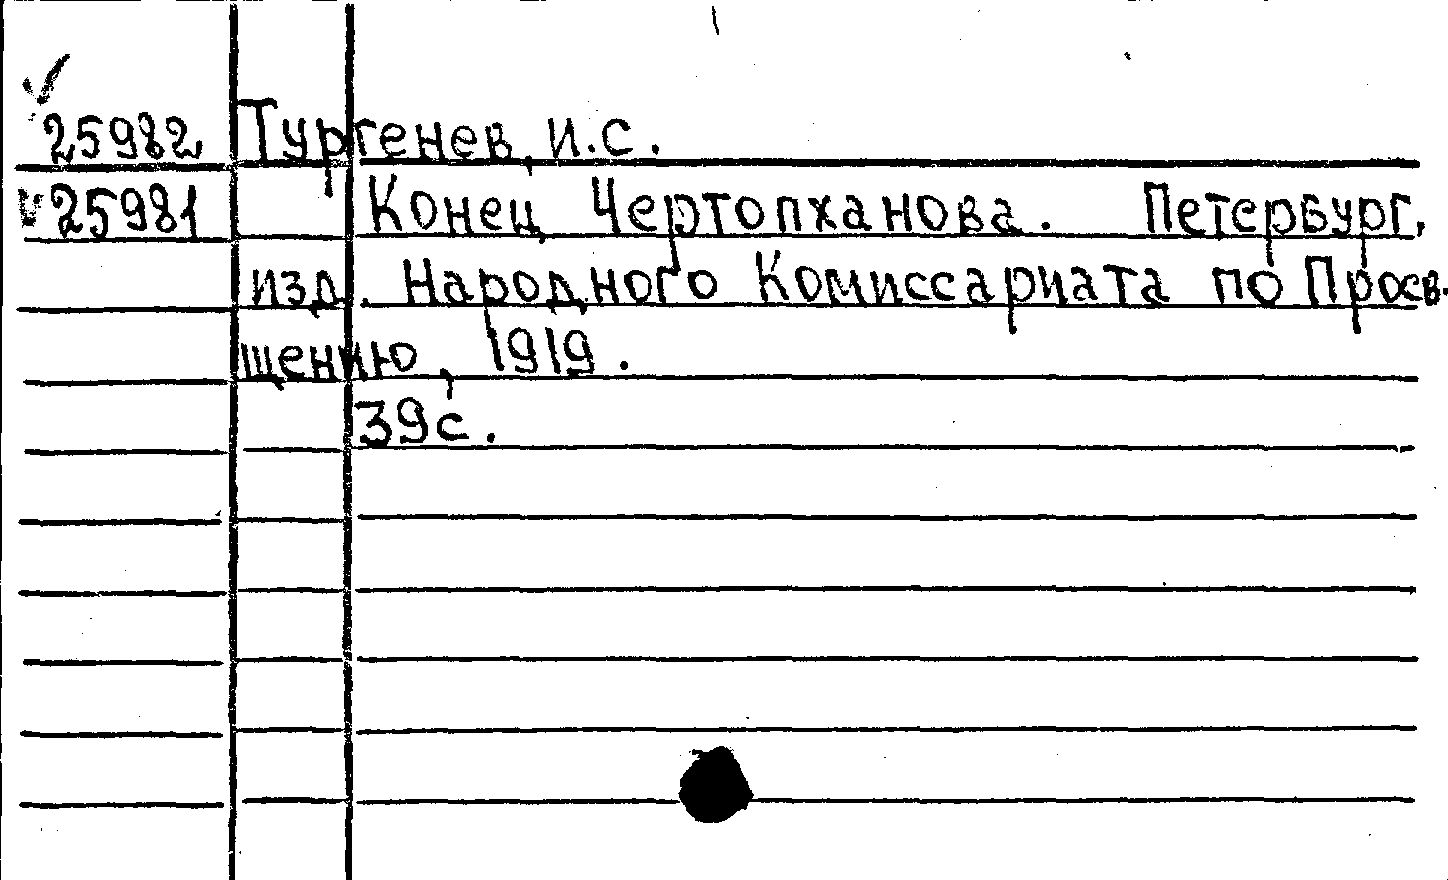 25982 Тургенев, И.С.
25981 Конец Чертопханова. Петербург,
изд. Народного Комиссариата по Просв.
щению, 1919.
39с.